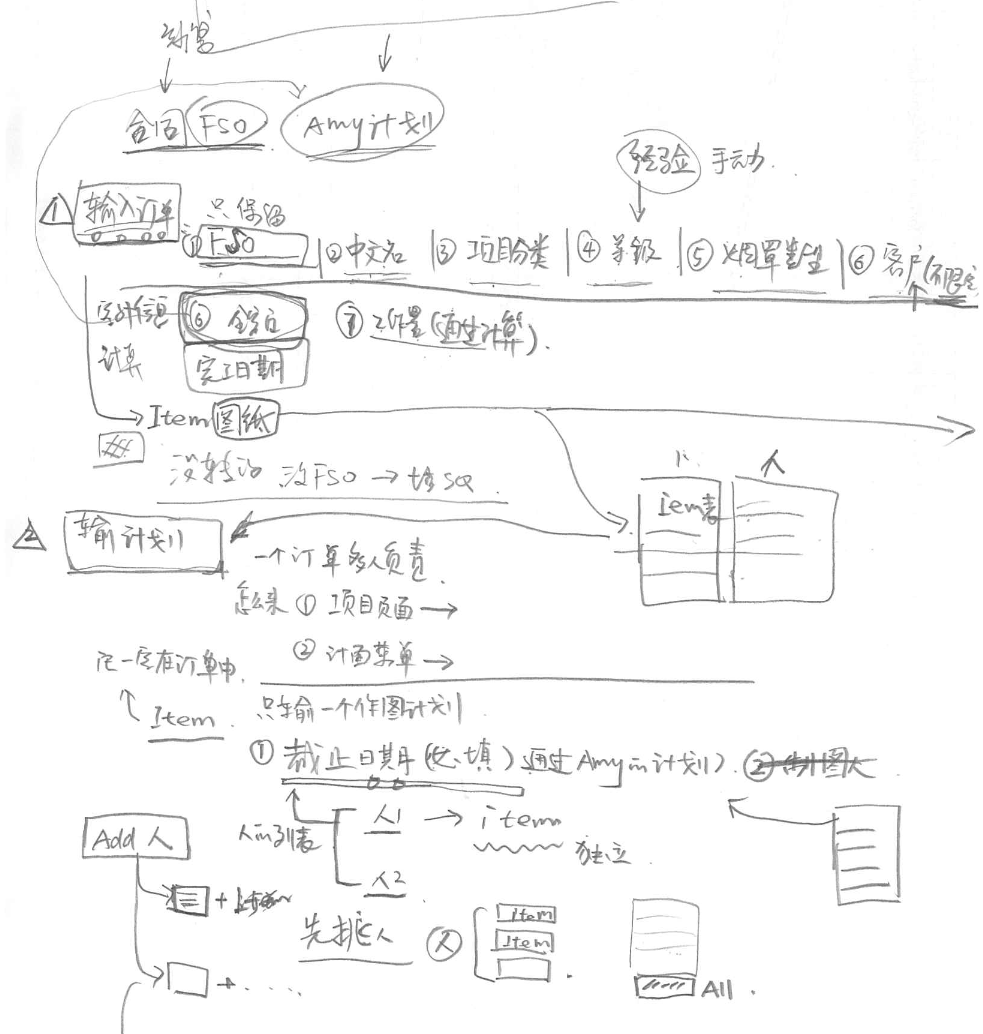 FSO Amy计划
经验 手动.
1 输入订单 只保留
① FSO ②中文名 ③项目分类 ④等级 ⑤烟罩类型 ⑥客户(不限定
计算 ⑥ ⑦工作量(通过计算).
完工日期
Item 图纸
没FSO → 填SQ
Item表 人
2 输计划
一个订单多人负责.
怎么来 ① 项目页面 →
② 计画菜单 →
一定在订单中.
Item. 只输一个作图计划
① 截止日期(必填)通过Amy的计划). ②制图人
人的列表 人1 → item
独立.
人2
Add 人
+ Item
先挑人 ② Item
Item
+ ·····
All.